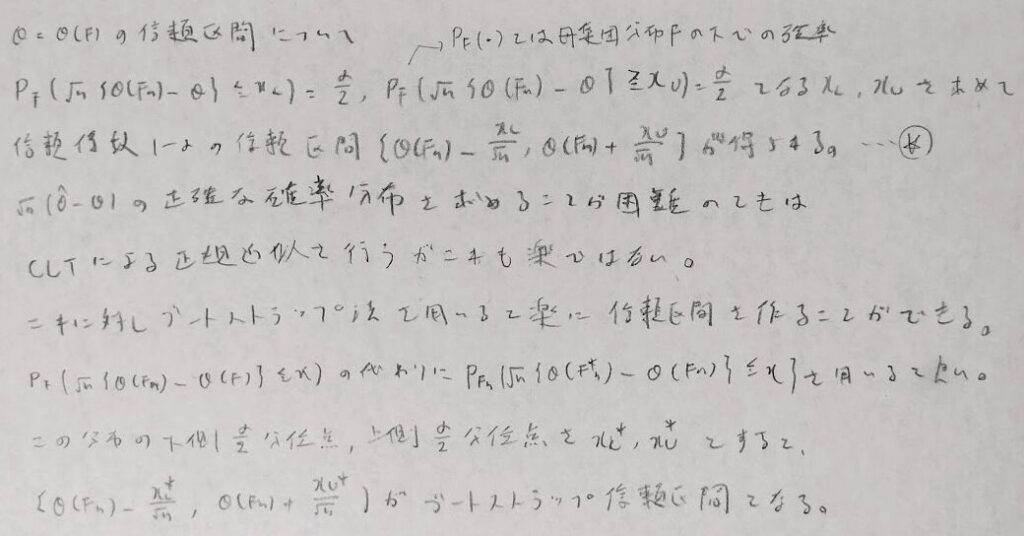 θ = θ(F) の信頼区間について
→ P_F(・) とは母集団分布Fの下での確率
P_F(√n{θ(Fn) - θ} ≦ x_L) = α/2, P_F(√n{θ(Fn) - θ} ≧ x_U) = α/2 となる x_L, x_U を求めて
信頼係数 1-α の信頼区間 {θ(Fn) - x_L/√n, θ(Fn) + x_U/√n} が得られる。 … (*)
√n(θ̂ - θ) の正確な確率分布を求めることが困難のときは
CLT による正規近似で行うがこれも楽ではない。
これに対しブートストラップ法を用いると楽に信頼区間を作ることができる。
P_F(√n{θ(Fn) - θ(F)} ≦ x) の代わりに P_Fn{√n{θ(F*n) - θ(Fn)} ≦ x} を用いると良い。
この分布の下側 α/2 分位点, 上側 α/2 分位点を x_L*, x_U* とすると、
{θ(Fn) - x_L*/√n, θ(Fn) + x_U*/√n} がブートストラップ信頼区間となる。